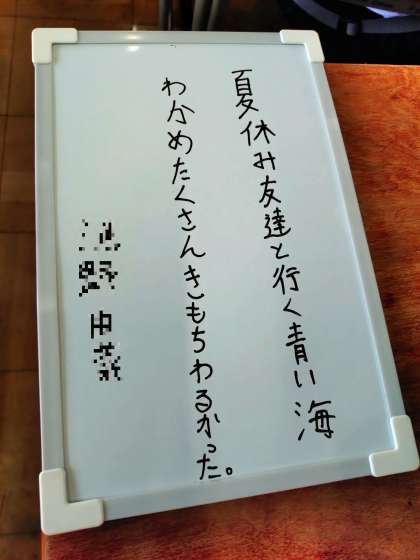 夏休み友達と行く青い海
わかめたくさんきもちわるかった。